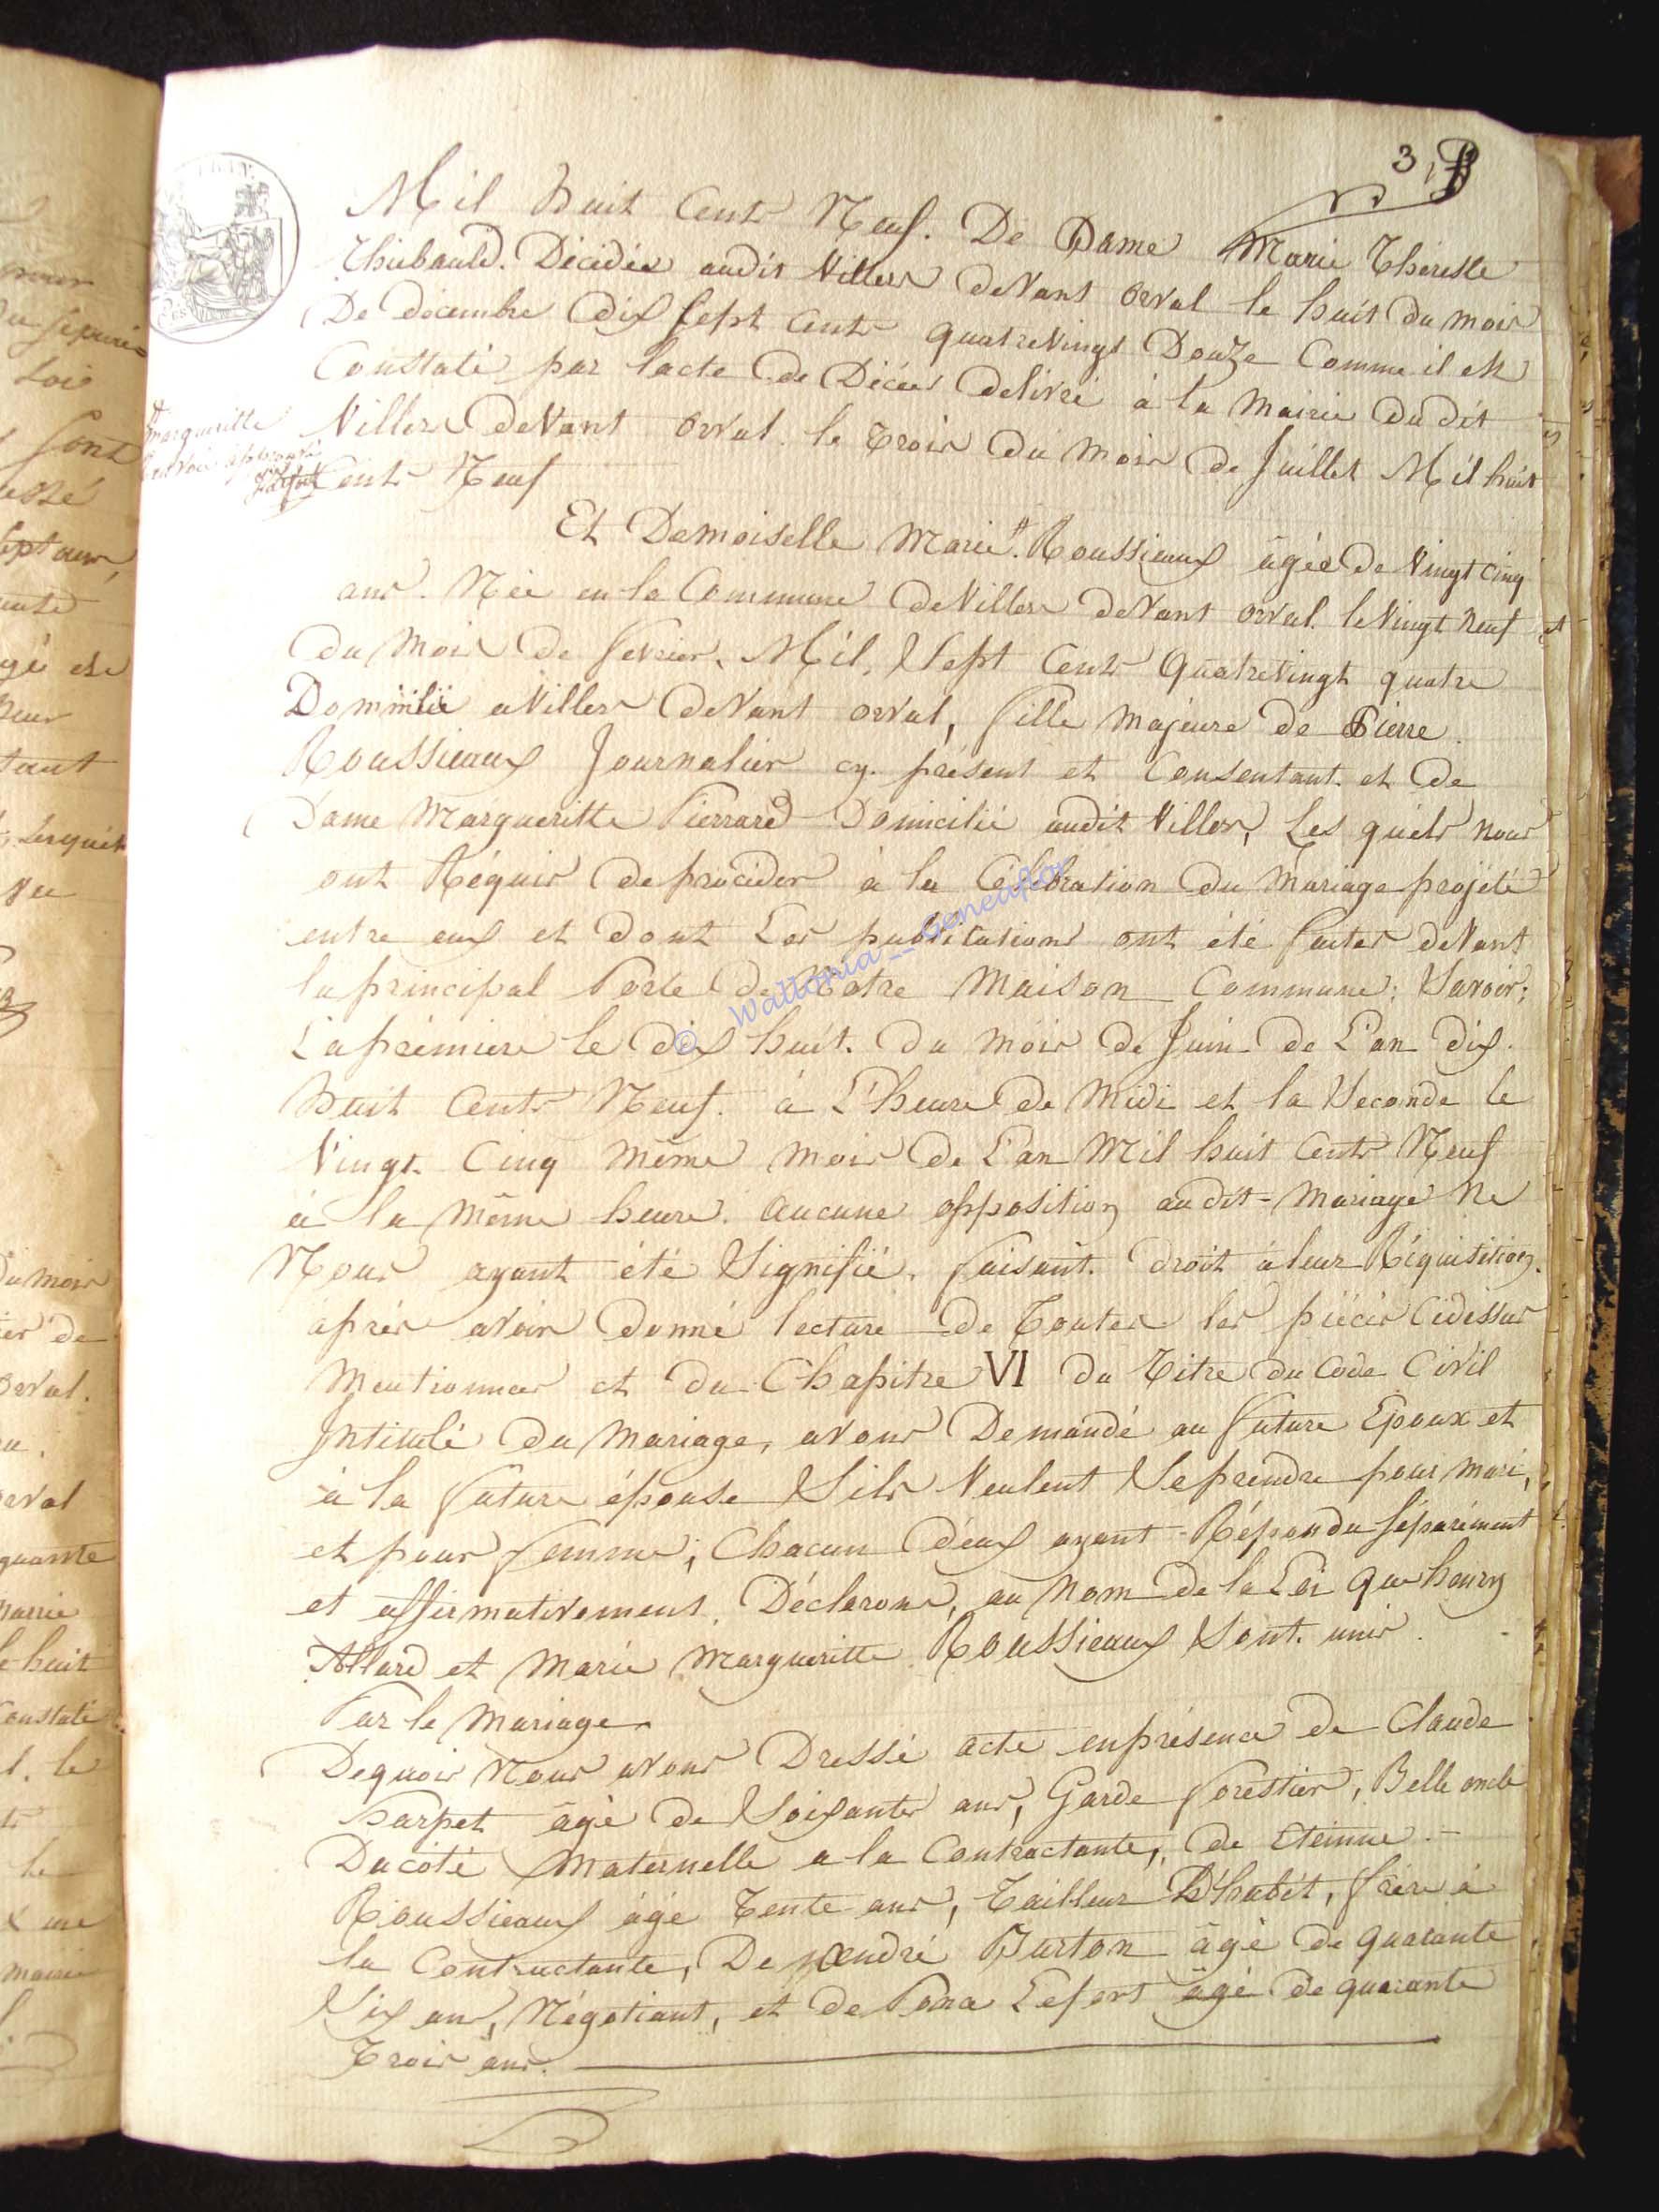 3
Mil huit Cents Neuf. De Dame Marie Theresse
Thiebauld. Décédée audit Villers deVant orval le huit du mois
De décembre dix sept cents quatreVingt Douze Comme il est
Constaté par lacte de Décès delivré à la Mairie dudit
Villers deVant orval le trois du mois de Juillet Mil huit
Cents Neuf
margueritte
Renvoie approuvé
Et Demoiselle Marie # Roussieaux âgée de Vingt cinq
ans. Née en la Commune deVillers deVant orval. le Vingt neuf
du Mois de fevrier, Mil, Sept Cents QuatreVingt quatre
aVillers deVant orval, fille majeure de Pierre
Roussieaux Journalier cy. présent et Consentant. et de
Dame Margueritte Pierrard Domicilié audit Villers, Les quels nous
ont Réquis de procéder à la Célébration du Mariage projété
entre eux et dont Les publications ont été faites deVant
la principal Porte de Notre Maison Commune; Savoir;
La prémiere le dix huit. du mois de Juin de L'an dix
huit Cents Neuf. à L'heure de Midi et la Seconde le
Vingt Cinq même mois de L'an Mil huit Cents Neuf
à la même heure. aucune opposition audit Mariage Ne
Nous ayant été Signifié, faisant. droit à leur Réquisition.
après avoir donné lecture de Toutes les piéces Cidessus
Mentionner et du Chapitre VI du Titre du Code Civil
Intitulé du Mariage, avons Demandé au future Epoux et
à la future épouse Sils Veulent Se prendre pour mari,
et pour femme; Chacun deux ayant Répondu séparément
et affirmativement. Déclarons, au Nom de la Loi que henry
Allard et Marie Margueritte Roussieaux Sont. unis
Par le Mariage
Dequois Nous avons Dressé acte enprésence de Claude
harpet âgé de Soixantes ans, Garde forestier, Belle oncle
Ducoté Maternelle a la Contractante, de Etienne
Roussieaux âgé Tente ans, Tailleur D'habit, frère à
la Contractante, De Burton âgé de quarante
Six ans, Négotiant, et de Lefort âgé de quarante
Trois ans.
© Wallonia -- Geneaflor